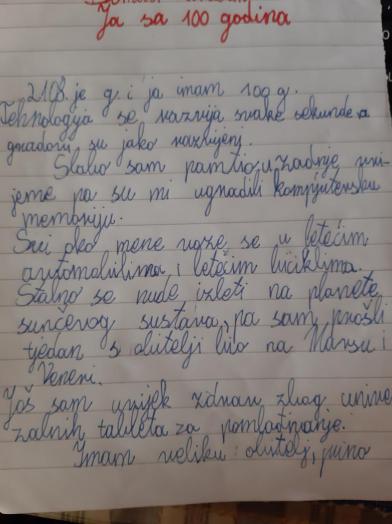 Ja sa 100 godina
2108. je g. i ja imam 100 g.
Tehnologija se razvija svake sekunde a
gradovi su jako razvijeni.
Slabo sam pamtio u zadnje vri-
jeme pa su mi ugradili kompjutersku
memoriju.
Svi oko mene voze se u letećim
automobilima i letećim biciklima.
Stalno se nude izleti na planete
sunčevog sustava, pa sam prošli
tjedan s obitelji bio na Marsu i
Veneri.
Još sam uvijek zdrav zbog univer
zalnih tableta za pomlađivanje.
Imam veliku obitelj, puno